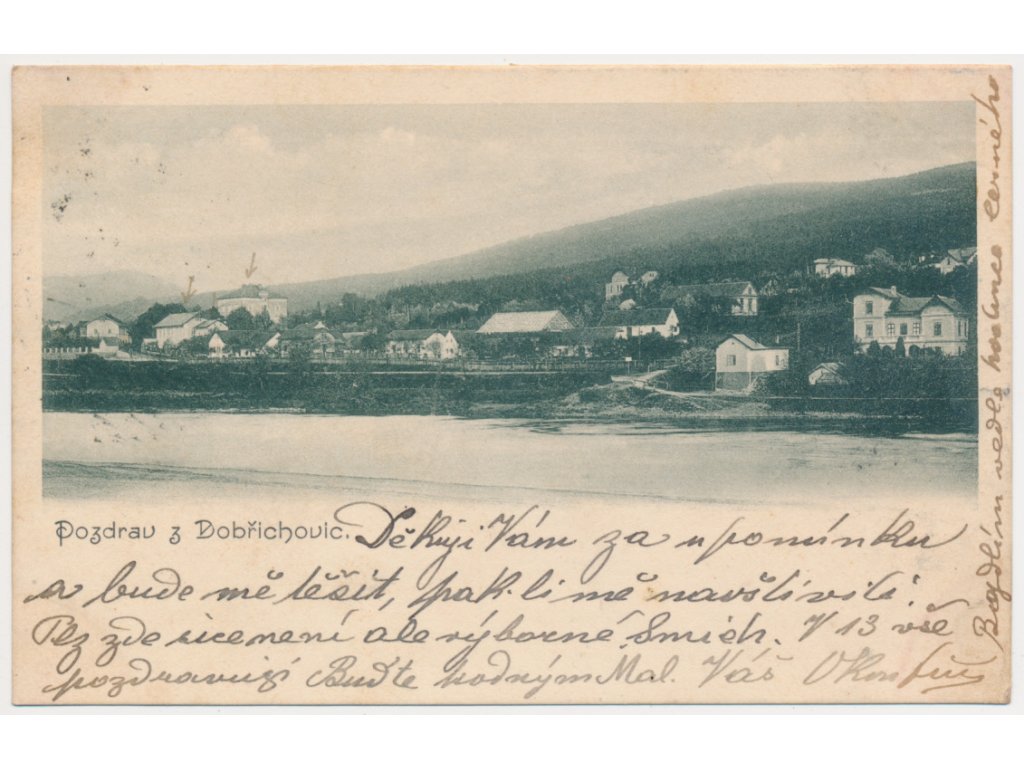 Pozdrav z Dobřichovic. Děkuji Vám za upomínku
a bude mě těšit, pak-li mě navštívili.
zde sice není ale výborné Smich. V 13 vše
pozdravuji Buďte hodným Mal. Váš
vedle hostince černého